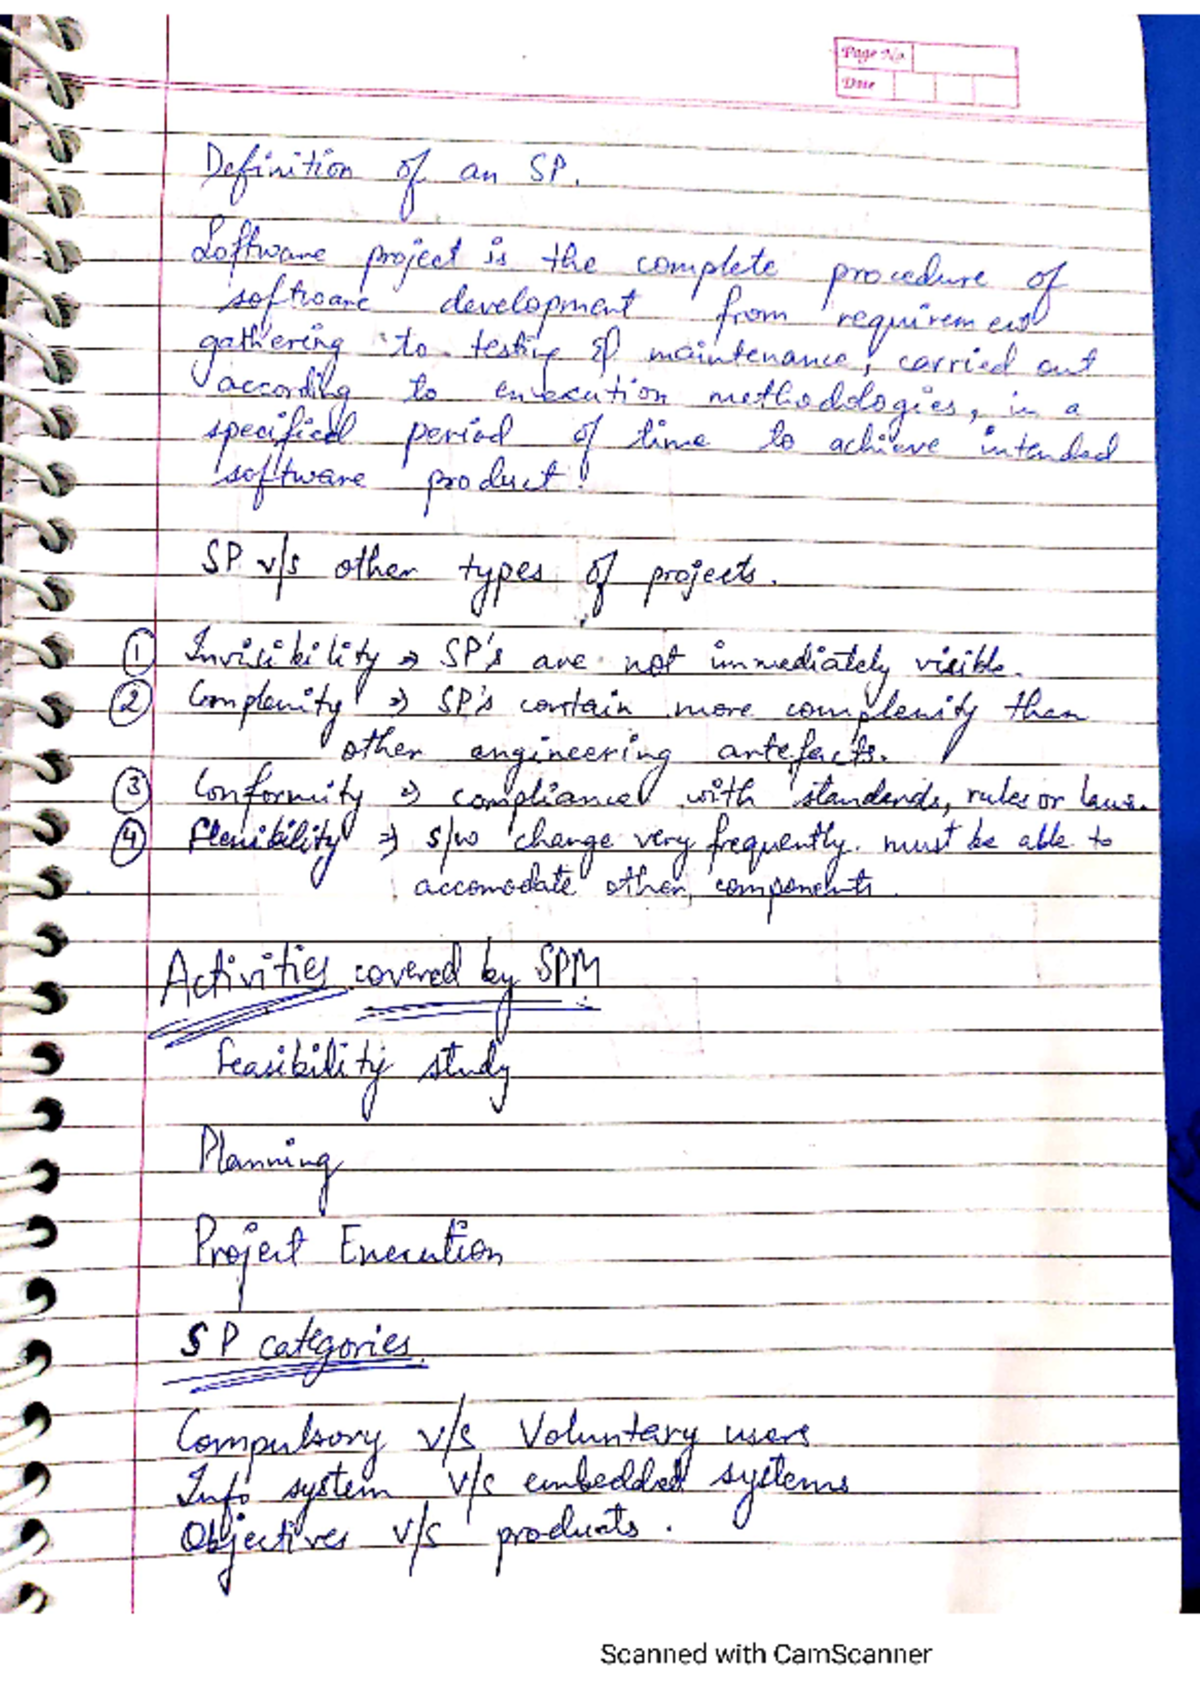 Page No.
Date
Definition of an SP.
Software project is the complete procedure of
software development from requirement
gathering to testing & maintenance, carried out
according to execution methodologies, in a
specified period of time to achieve intended
software product.
SP v/s other types of projects.
① Invisibility → SP's are not immediately visible.
② Complexity → SP's contain more complexity than
other engineering artefacts.
③ Conformity → compliance with standards, rules or laws.
④ Flexibility → s/w change very frequently. must be able to
accomodate other components.
Activities covered by SPM
Feasibility study
Planning
Project Execution
SP categories.
Compulsory v/s Voluntary users
Info system v/s embedded systems
Objectives v/s products.
Scanned with CamScanner